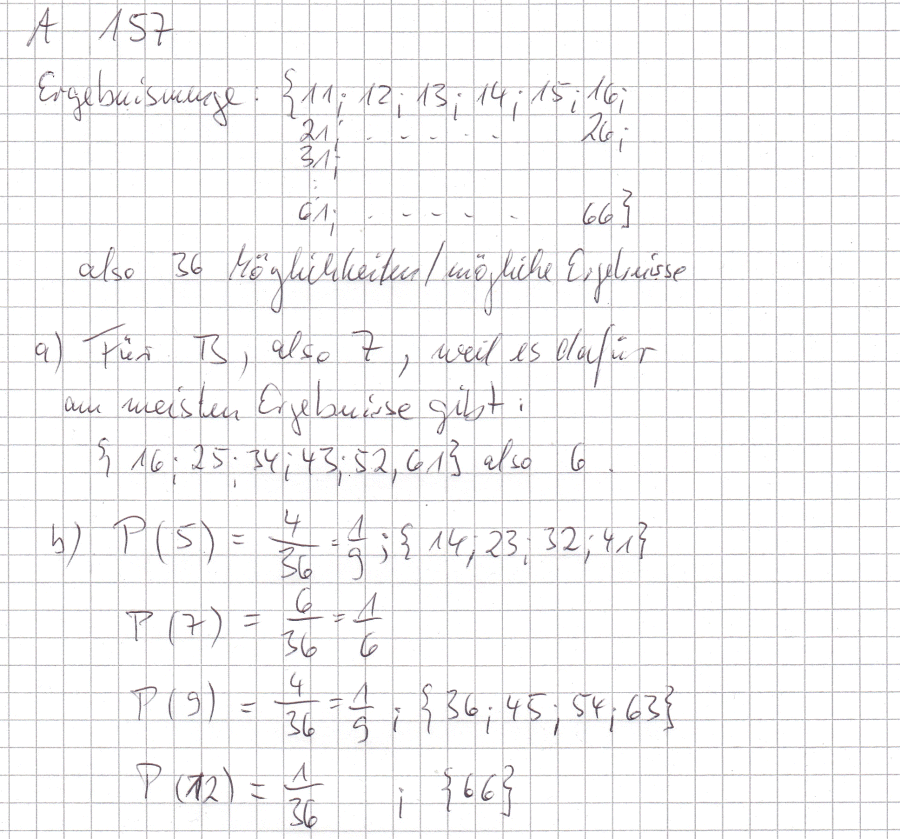 A 157
Ergebnismenge: {11; 12; 13; 14; 15; 16;
21; . - - - - 26;
31;
⋮
61; . - - - . 66}
also 36 Möglichkeiten/mögliche Ergebnisse
a) Für B, also 7, weil es dafür
am meisten Ergebnisse gibt:
{ 16; 25; 34; 43; 52, 61} also 6.
b) P(5) = 4/36 = 1/9 ; { 14; 23; 32; 41}
P(7) = 6/36 = 1/6
P(9) = 4/36 = 1/9 ; {36; 45; 54; 63}
P(12) = 1/36 ; {66}